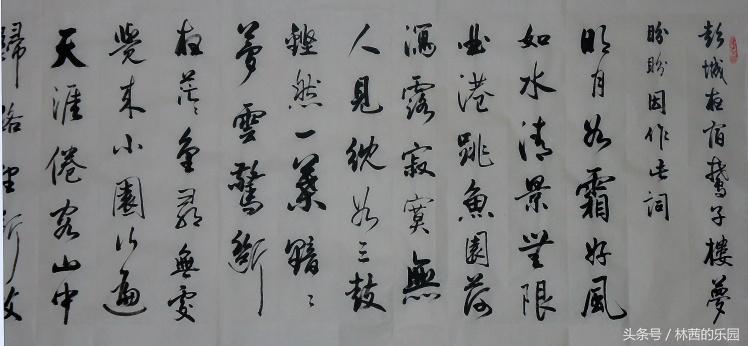 彭城夜宿鷰子樓夢
盼盼因作此詞
明月如霜好風
如水清景無限
曲港跳魚圓荷
瀉露寂寞無
人見紞如三鼓
鏗然一葉黯〻
夢雲驚斷
夜茫〻重尋無處
覺來小園行遍
天涯倦客山中
歸路望斷故
头条号 / 林茜的乐园